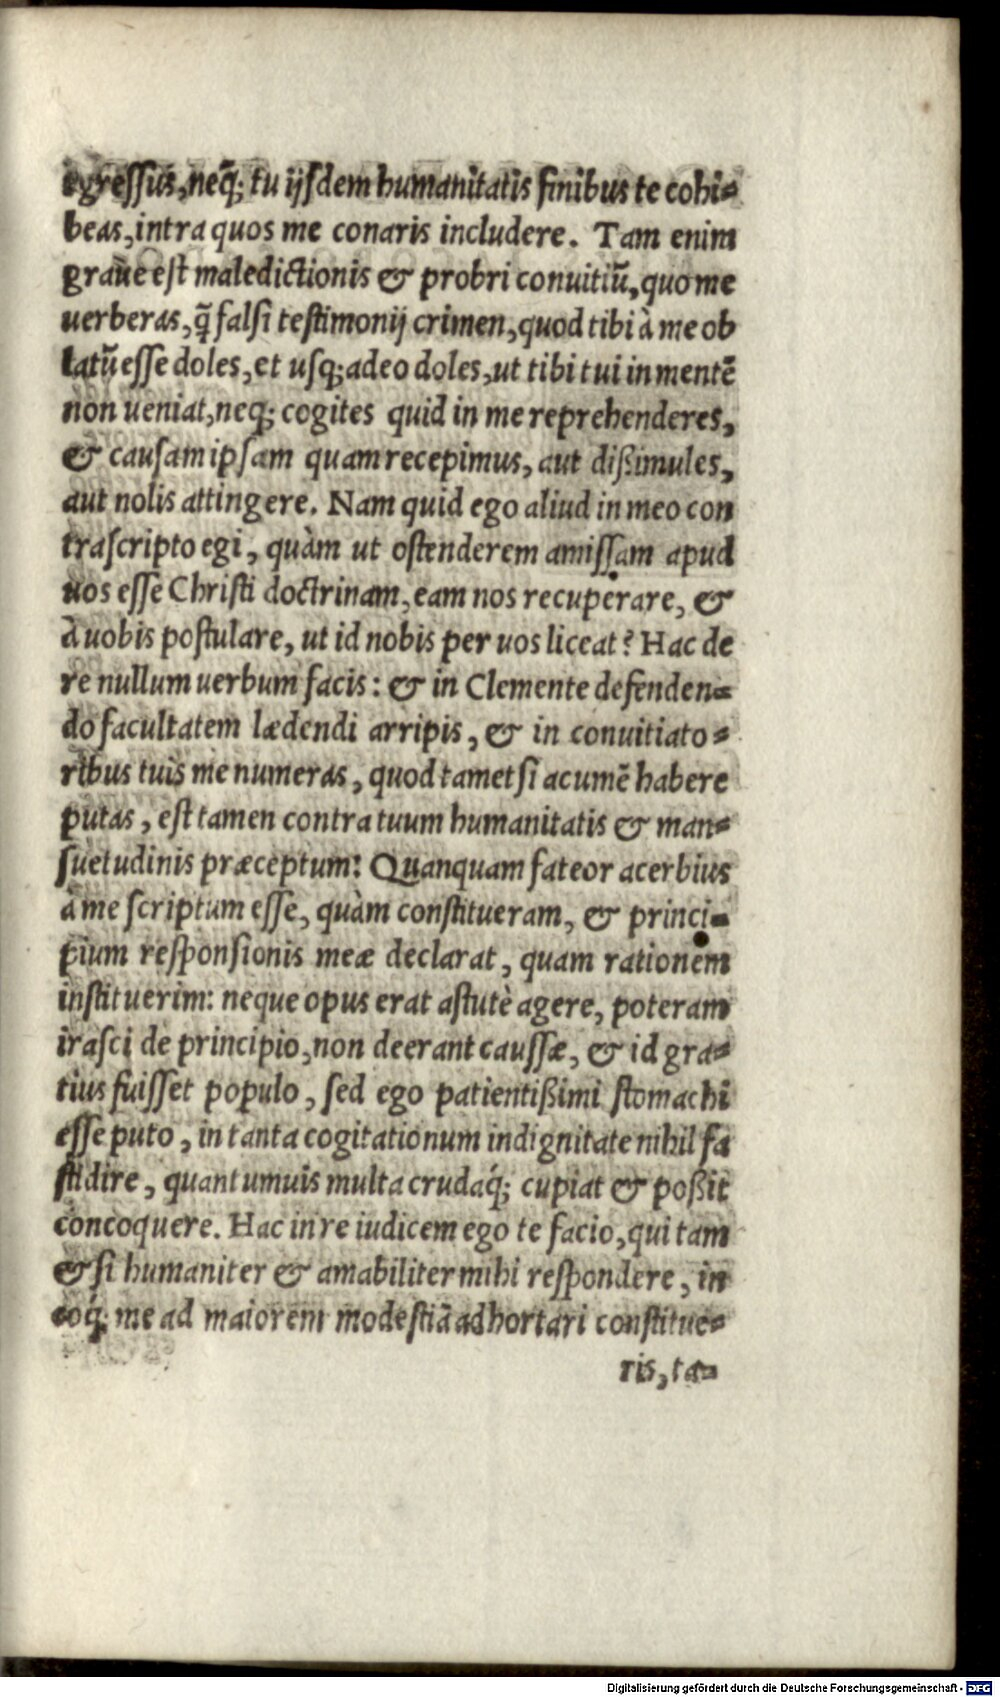 egressus, neq̃; tu ijsdem humanitatis finibus te cohi-
beas, intra quos me conaris includere. Tam enim
graue est maledictionis & probri conuitiũ, quo me
uerberas, q̃ falsi testimonij crimen, quod tibi à me ob
latũ esse doles, et usq; adeo doles, ut tibi tui in mentẽ
non ueniat, neq; cogites quid in me reprehenderes,
& causam ipsam quam recepimus, aut dißimules,
aut nolis attingere. Nam quid ego aliud in meo con
trascripto egi, quàm ut ostenderem amissam apud
uos esse Christi doctrinam, eam nos recuperare, &
à uobis postulare, ut id nobis per uos liceat? Hac de
re nullum uerbum facis: & in Clemente defenden-
do facultatem lædendi arripis, & in conuitiato-
ribus tuis me numeras, quod tametsi acumẽ habere
putas, est tamen contra tuum humanitatis & man-
suetudinis præceptum: Quanquam fateor acerbius
à me scriptum esse, quàm constitueram, & princi-
pium responsionis meæ declarat, quam rationem
instituerim: neque opus erat astutè agere, poteram
irasci de principio, non deerant caussæ, & id gra-
tius fuisset populo, sed ego patientißimi stomachi
esse puto, in tanta cogitationum indignitate nihil fa
stidire, quantumuis multa crudaq́; cupiat & poßit
concoquere. Hac in re iudicem ego te facio, qui tam
& si humaniter & amabiliter mihi respondere, in
eoq́; me ad maiorem modestiã adhortari constitue-
ris, ta-
Digitalisierung gefördert durch die Deutsche Forschungsgemeinschaft - DFG